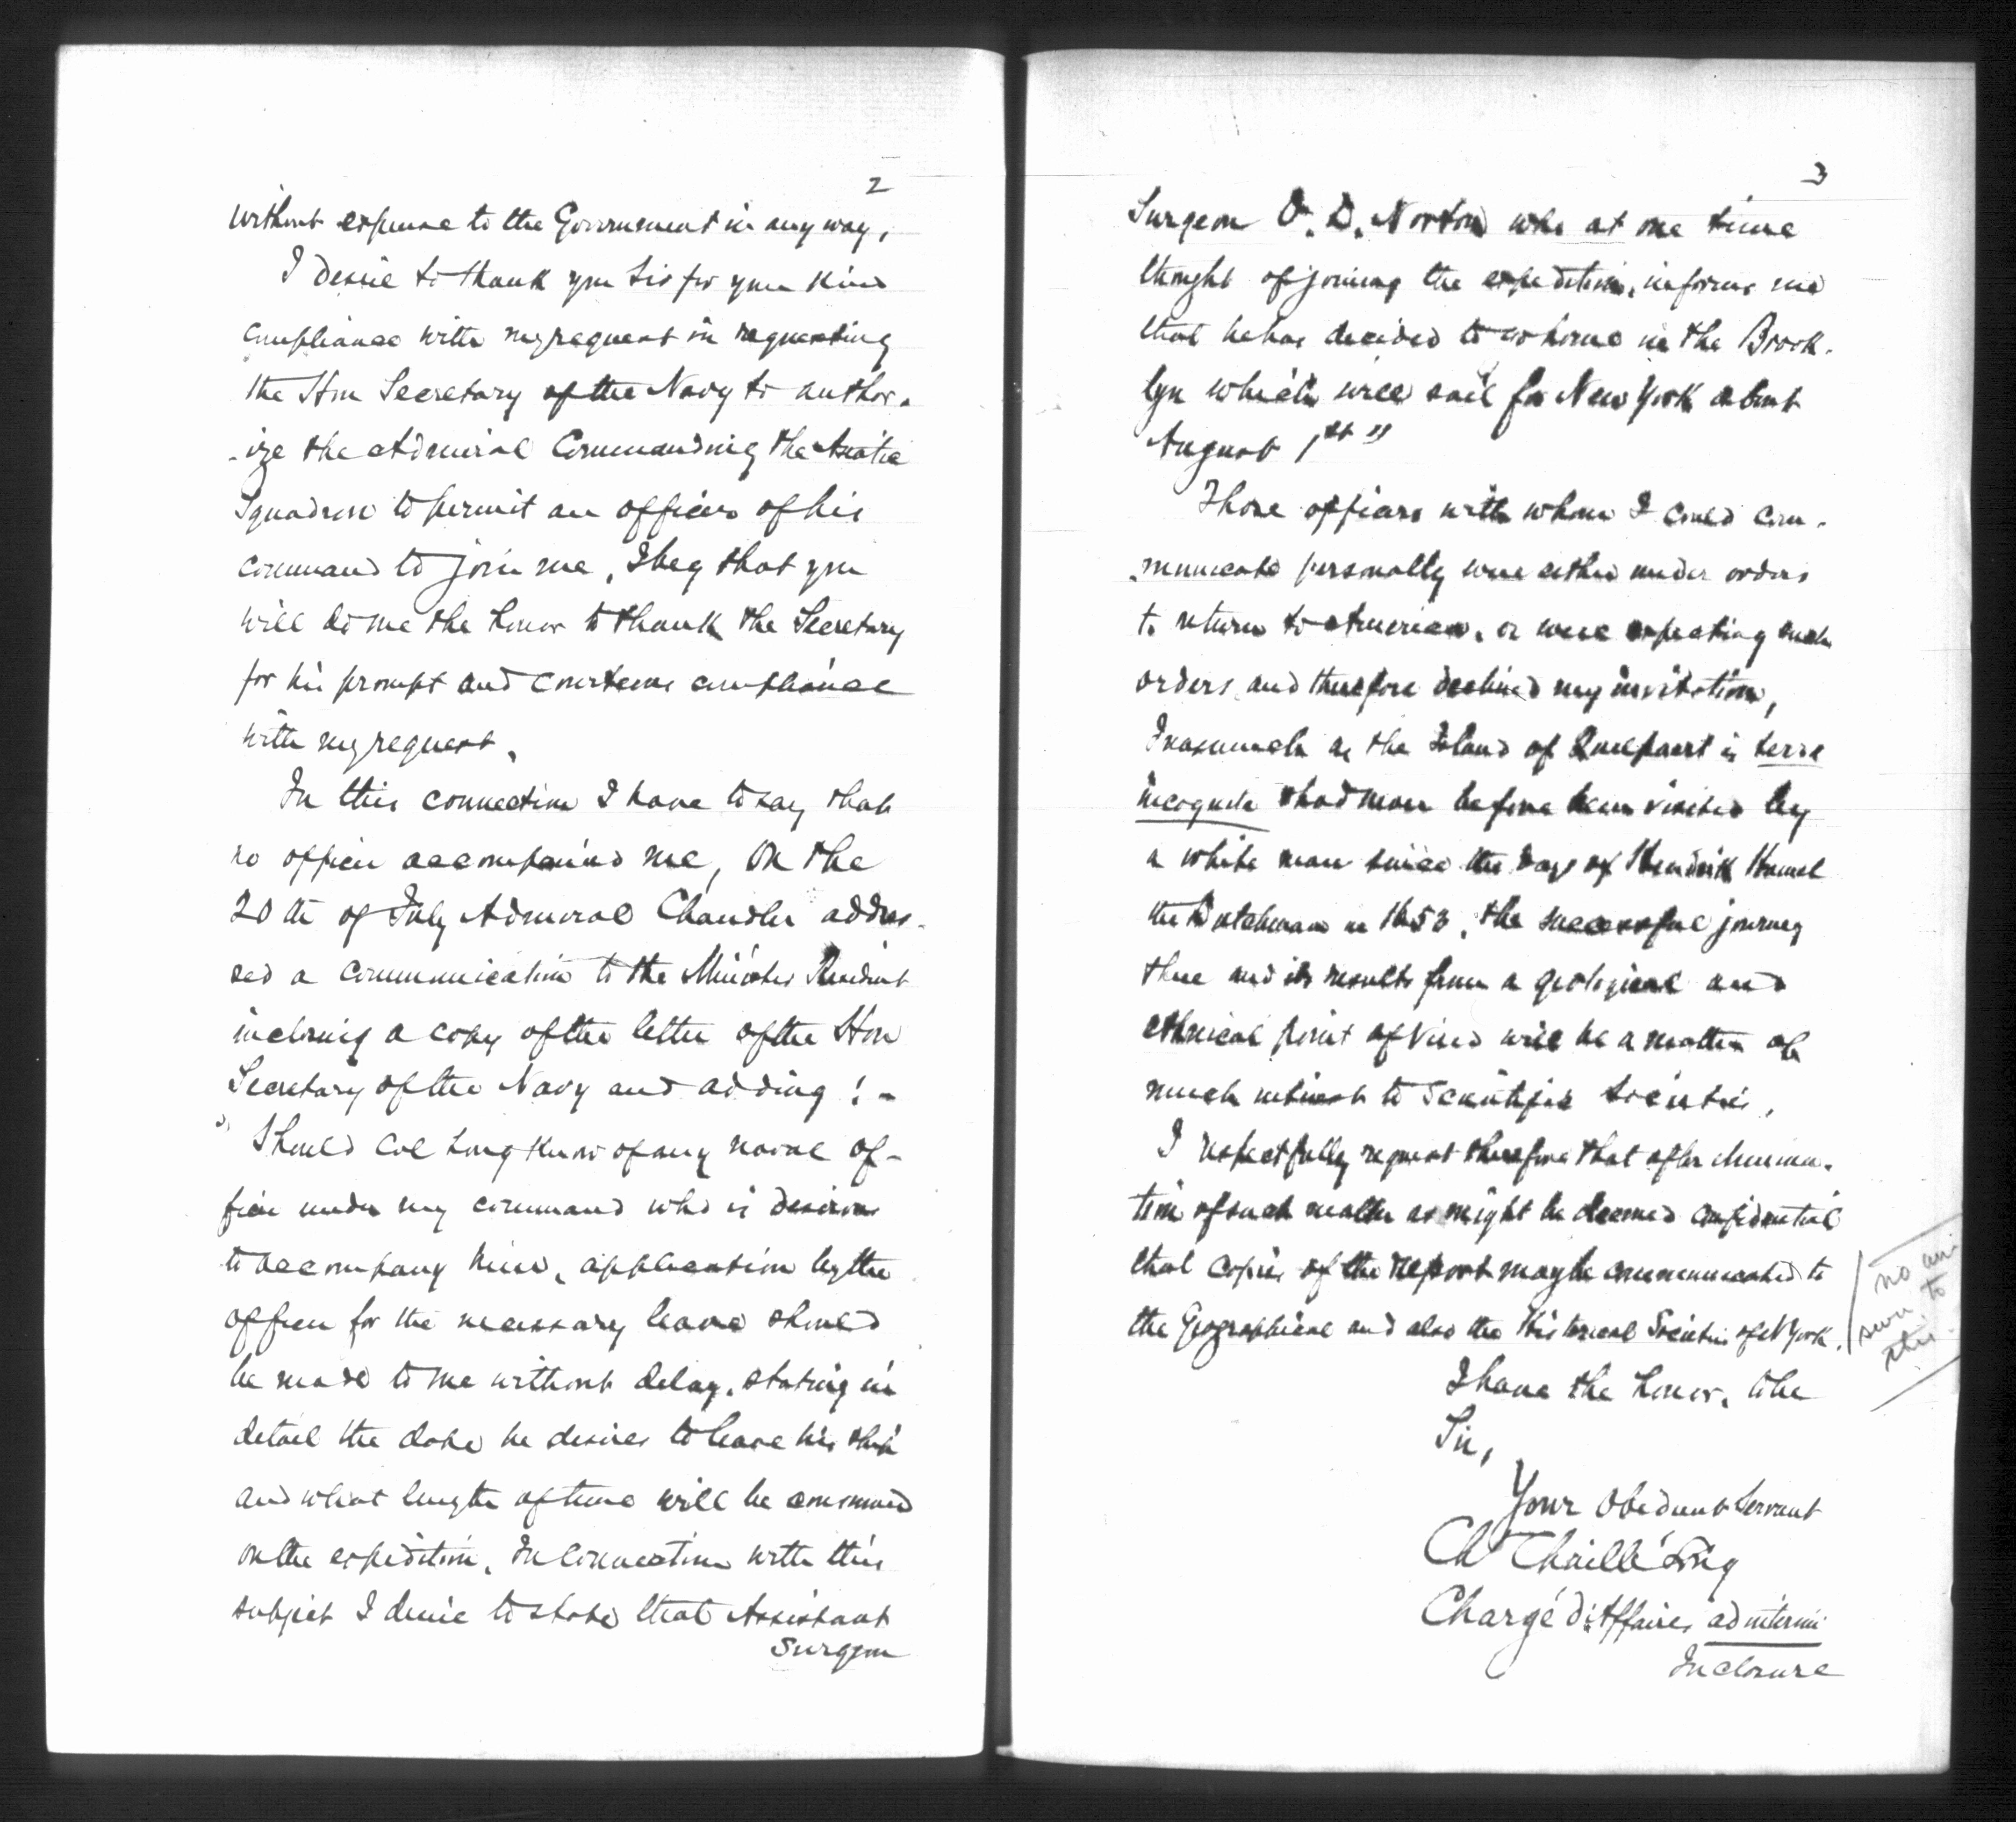 2
without expense to the Government in any way,
I desire to thank you Sir for your kind
compliance with my request in requesting
the Hon Secretary of the Navy to author-
-ize the Admiral Commanding the Asiatic
Squadron to permit an officer of his
command to join me, I beg that you
will do me the honor to thank the Secretary
for his prompt and courteous compliance
with my request.
In this connection I have to say that
no officer accompanied me, On the
20th of July Admiral Chandler addres-
sed a communication to the Minister Resident
inclosing a copy of the letter of the Hon
Secretary of the Navy and adding: -
" Should Col Long know of any naval of-
ficer under my command who is desirous
to accompany him, application by the
officer for the necessary leave should
be made to me without delay, stating in
detail the date he desires to leave his ship
and what length of time will be consumed
on the expedition, In connection with this
subject I desire to state that Assistant
Surgeon
3
Surgeon O. D. Norton who at one time
thought of joining the expedition, informs me
that he has decided to go home in the Brook-
lyn which will sail for New York about
August 1st "
Those officers with whom I could com-
-municate personally were either under orders
to return to America, or were expecting such
orders and therefore declined my invitation,
Inasmuch as the Island of Quelpaert is terra
incognita & had never before been visited by
a white man since the days of Hendrik Hamel
the Dutchman in 1653, the successful journey
there and its results from a geological and
ethnical point of view will be a matter of
much interest to Scientific Societies,
I respectfully request therefore that after elimina-
tion of such matter as might be deemed confidential
that copies of the report may be communicated to
the Geographical and also the Historical Societies of N York.
no an
swer to
this
I have the honor, to be
Sir,
Your Obedient Servant
Ch Chaillé Long
Chargé d'Affaires ad interim
Inclosure